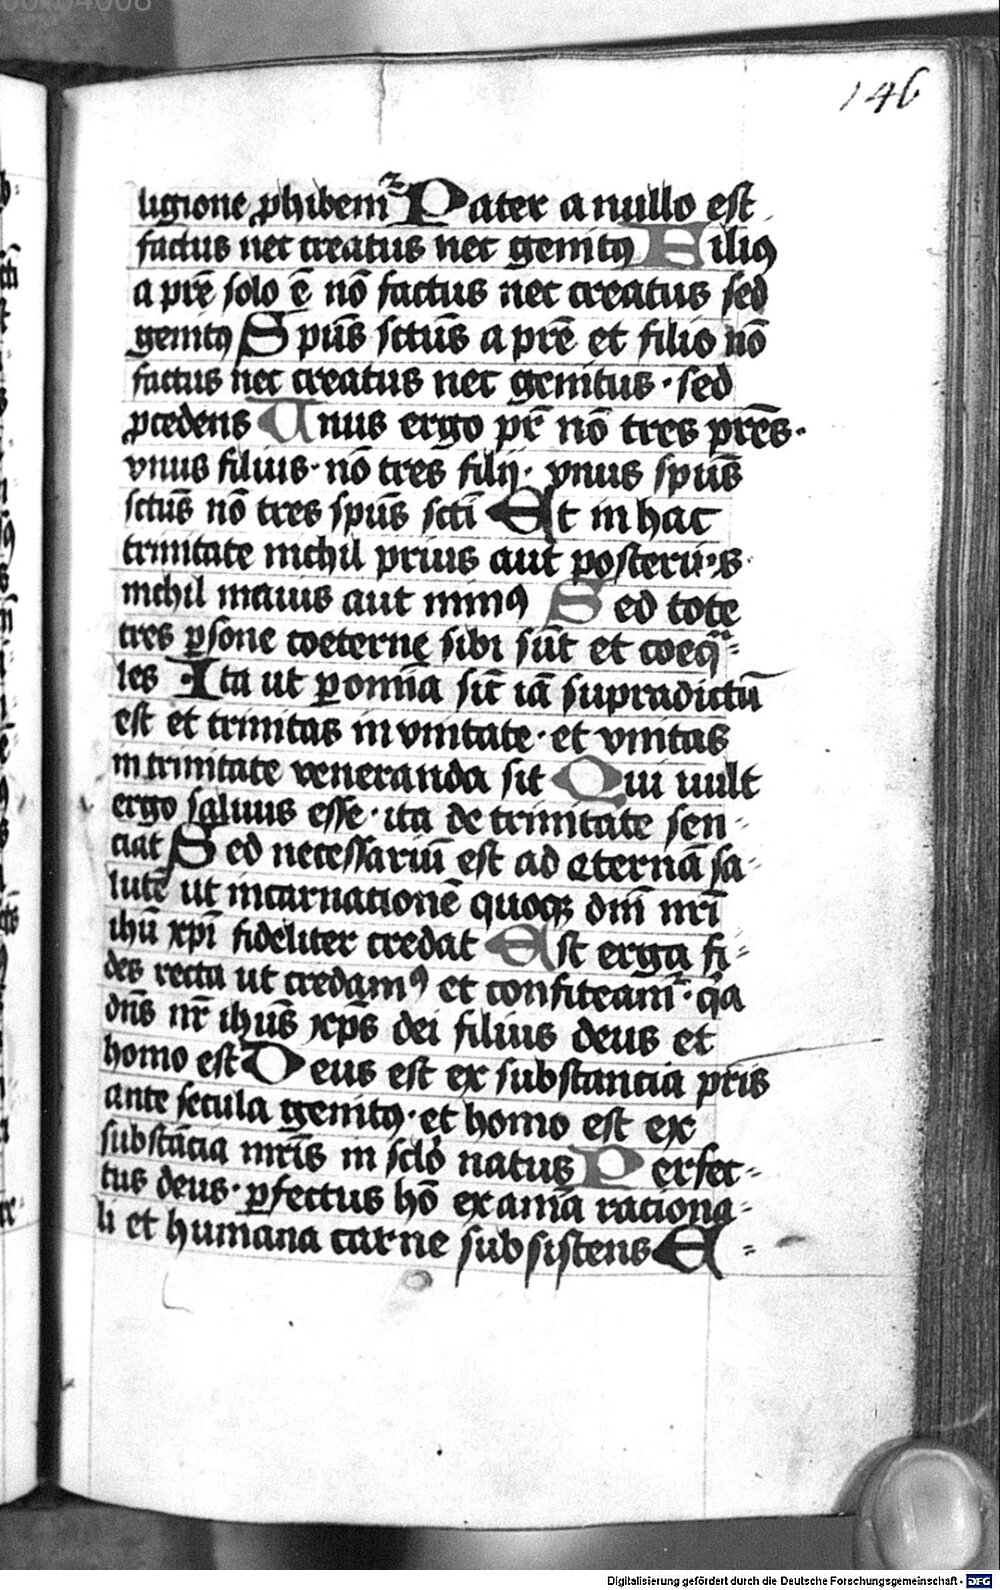 146
ligione ꝓhibemᷣ Pater a nullo est
factus nec creatus nec genitꝰ Filiꝰ
a pr̄e solo ē nō factus nec creatus sed
genitꝰ Spūs sctūs a pr̄e et filio nō
factus nec creatus nec genitus · sed
ꝓcedens Unus ergo pr̄ nō tres pr̄es ·
vnus filius · nō tres filij · vnus spūs
sctūs nō tres spūs sctī Et in hac
trinitate nichil prius aut posterius
nichil maius aut minꝰ Sed tote
tres ꝑsone coeterne sibi sūt et coeqᷓ-
les Ita ut ꝑ omīa sic̄ iā supradictū
est et trinitas in vnitate · et vnitas
in trinitate veneranda sit Qui uult
ergo saluus esse · ita de trinitate sen-
ciat Sed necessariū est ad eternā sa-
lutē ut incarnationē quoqꝫ dnī nrī
ihū xpī fideliter credat Est erga fi-
des recta ut credamꝰ et confiteamᷣ · qia
dn̄s nr̄ ihūs xp̄s dei filius deus et
homo est Deus est ex substancia pris
ante secula genitꝰ · et homo est ex
substācia mr̄is in sclō natus Perfec-
tus deus · ꝑfectus hō ex aīma raciona-
li et humana carne subsistens E-
Digitalisierung gefördert durch die Deutsche Forschungsgemeinschaft - DFG